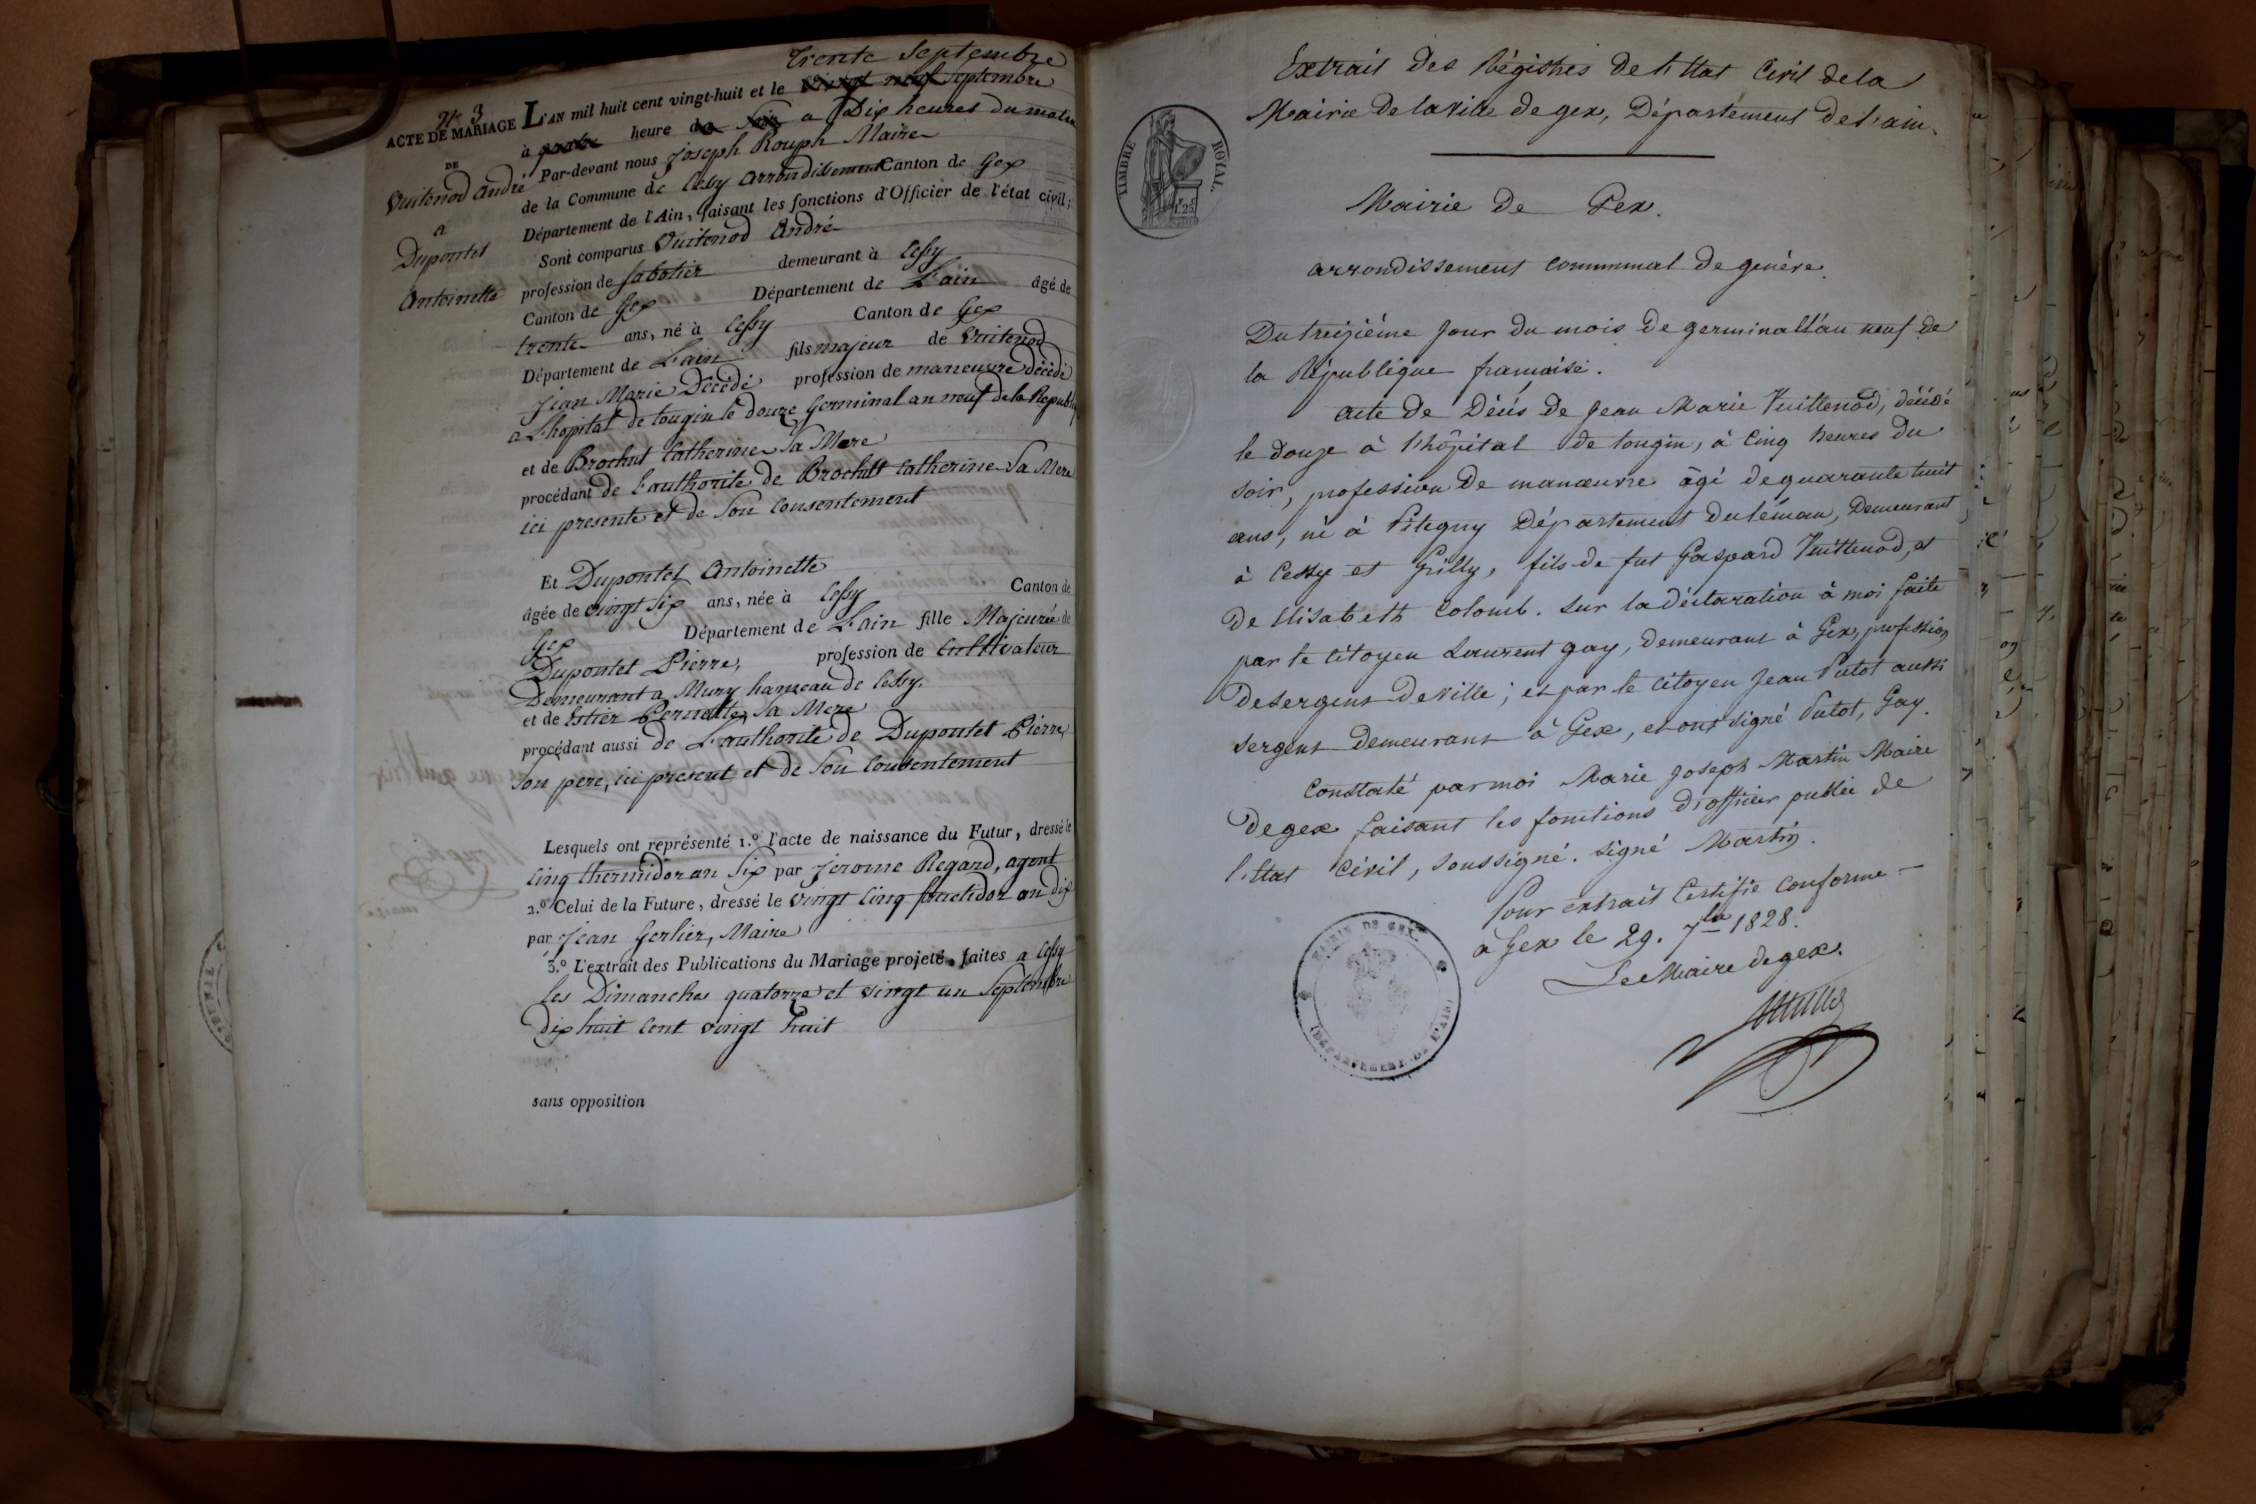 trente Septembre
N° 3
ACTE DE MARIAGE
DE
Vuitenod André
a
Dupontet
Antoinette
L'AN mil huit cent vingt-huit et le vingt neuf Septembre
à quatre heure du Soir a Dix heures du matin
Par-devant nous Joseph Rouph Maire
de la Commune de Cessy arrondissement Canton de Gex
Département de l'Ain, faisant les fonctions d'Officier de l'état civil;
Sont comparus Vuitenod André
profession de Sabotier demeurant à Cessy
Canton de Gex Département de L'ain âgé de
trente ans, né à Cessy Canton de Gex
Département de L'ain fils majeur de Vuitenod
Jean Marie Décédé profession de maneuvre décédé
a L'hopital de tougin le douze Germinal an neuf de la Republi
et de Brochut Catherine Sa Mere
procédant de L'authorité de Brochut Catherine Sa Mere
ici presente et de Son Consentement
Et Dupontet Antoinette
âgée de vingt Six ans, née à Cessy Canton de
Gex Département de L'ain fille Majeure de
Dupontet Pierre, profession de Cultivateur
Demeurant a Mury hameau de Cessy.
et de Estier Pernette, Sa Mere
procédant aussi de L'authorité de Dupontet Pierre,
Son pere, ici present et de Son Consentement
Lesquels ont représenté 1.° l'acte de naissance du Futur, dressé le
Cinq thermidor an Six par Jerome Regard, agent
2.° Celui de la Future, dressé le vingt Cinq fructidor an dix
par Jean Gerlier, Maire
3.° L'extrait des Publications du Mariage projeté, faites a Cessy
les Dimanches quatorze et vingt un Septembre
Dix huit Cent vingt huit
sans opposition
Extrait des Régistres de l'Etat Civil de la
Mairie de la ville de gex, Département de l'ain.
TIMBRE ROYAL
Mairie de Gex.
arrondissement communal de genéve.
Du treiziéme Jour du mois de germinal l'an neuf de
la République francaise.
acte de Décés de Jean Marie Vuittenod, décédé
le douze à l'hôpital de tougin, à Cinq heures du
soir, profession de manœuvre âgé de quarante huit
ans, né à Pitegny Département du léman, Demeurant
à Cessy et Grilly, fils de fut Gaspard Vuittenod, et
de Elisabeth Colomb. Sur la déclaration à moi faite
par le Citoyen Laurent gay, demeurant à Gex, profession
de sergent de ville; et par le Citoyen Jean Putot aussi
sergent demeurant à Gex, et ont signé Putot, Gay.
Constaté par moi Marie Joseph Martin Maire
de gex faisant les fonctions d'officier public de
l'Etat Civil, soussigné. signé Martin.
Pour extrait Certifié Conforme
à Gex le 29. 7bre 1828.
Le Maire de gex.
MAIRIE DE GEX
DÉPARTEMENT DE L'AIN